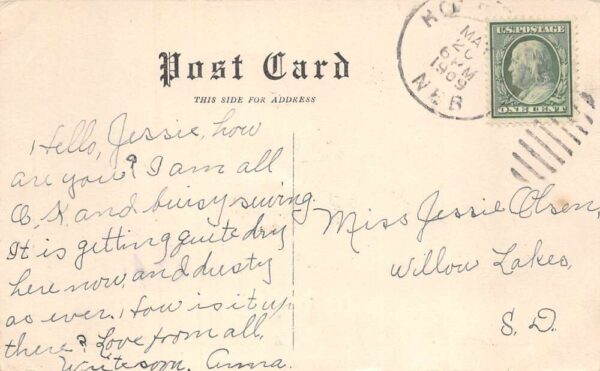 Post Card
THIS SIDE FOR ADDRESS
MAY
20
6 PM
1909
NEB
U.S. POSTAGE
ONE CENT
Hello, Jessie, how
are you? I am all
O, K and buisy sewing.
It is getting quite dry
here now, and dusty
as ever. How is it up
there? Love from all,
Write soon, Anna.
Miss Jessie Olsen,
Willow Lakes,
S. D.